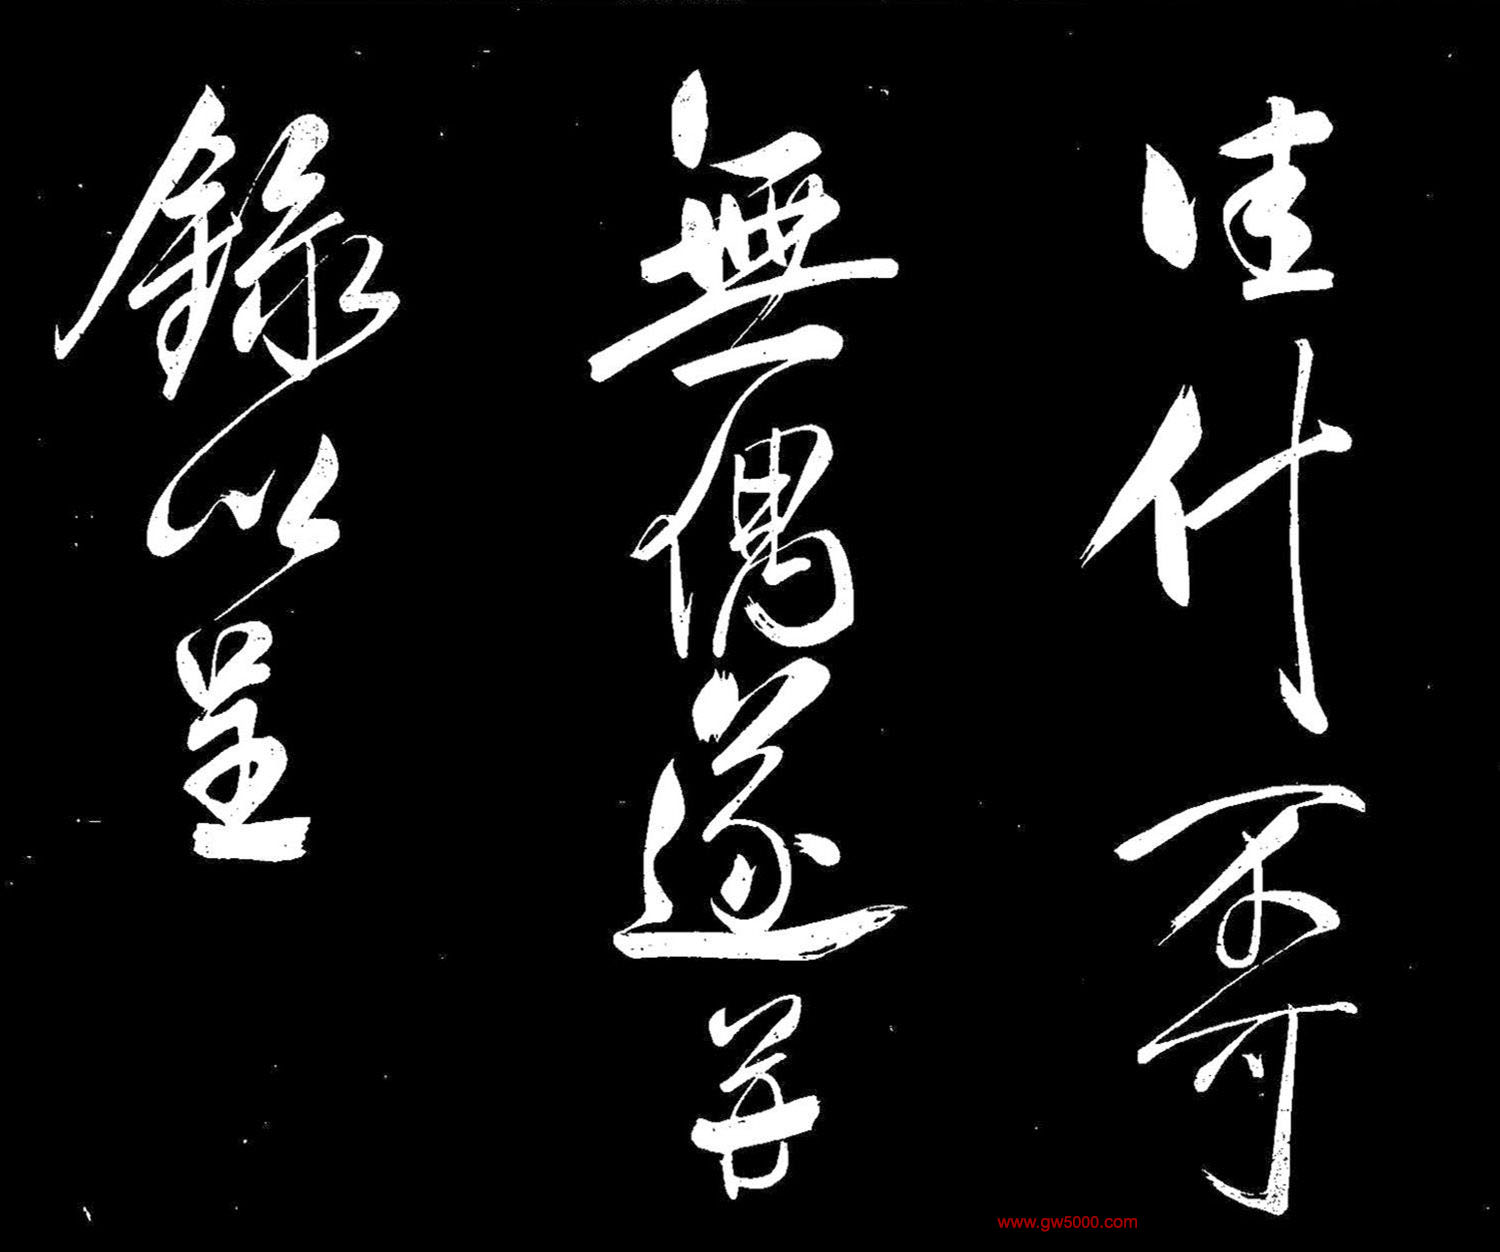 佳什不可
無偶遂并
錄以呈
www.gw5000.com